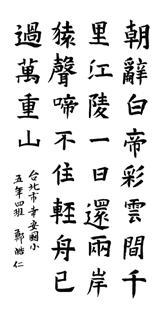 朝辭白帝彩雲間千
里江陵一日還兩岸
猿聲啼不住輕舟已
過萬重山
台北市 安國小
五年四班 鄭皓仁